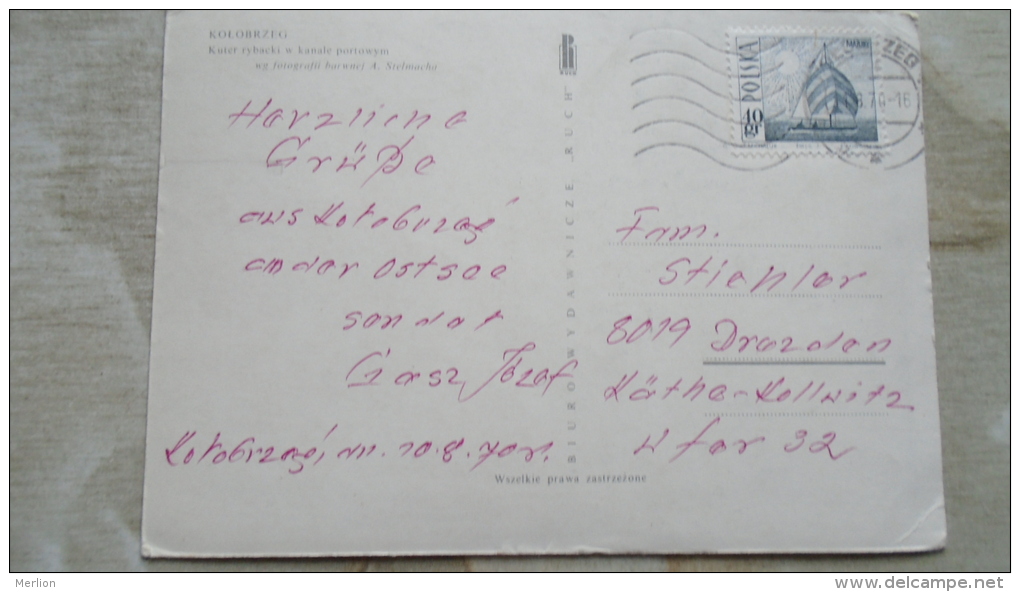 KOŁOBRZEG
Kuter rybacki w kanale portowym
wg fotografii barwnej A. Stelmacha
Herzliche
Grüße
aus Kołobrzeg
an der Ostsee
sendet
Józef
Kołobrzeg, 10.8.70r.
BIURO WYDAWNICZE „RUCH"
Wszelkie prawa zastrzeżone
POLSKA
40 gr
ZEG
8.70-16
Fam.
Stiehler
8019 Drezden
Käthe-Kollwitz
Ufer 32
Merlion
www.delcampe.net